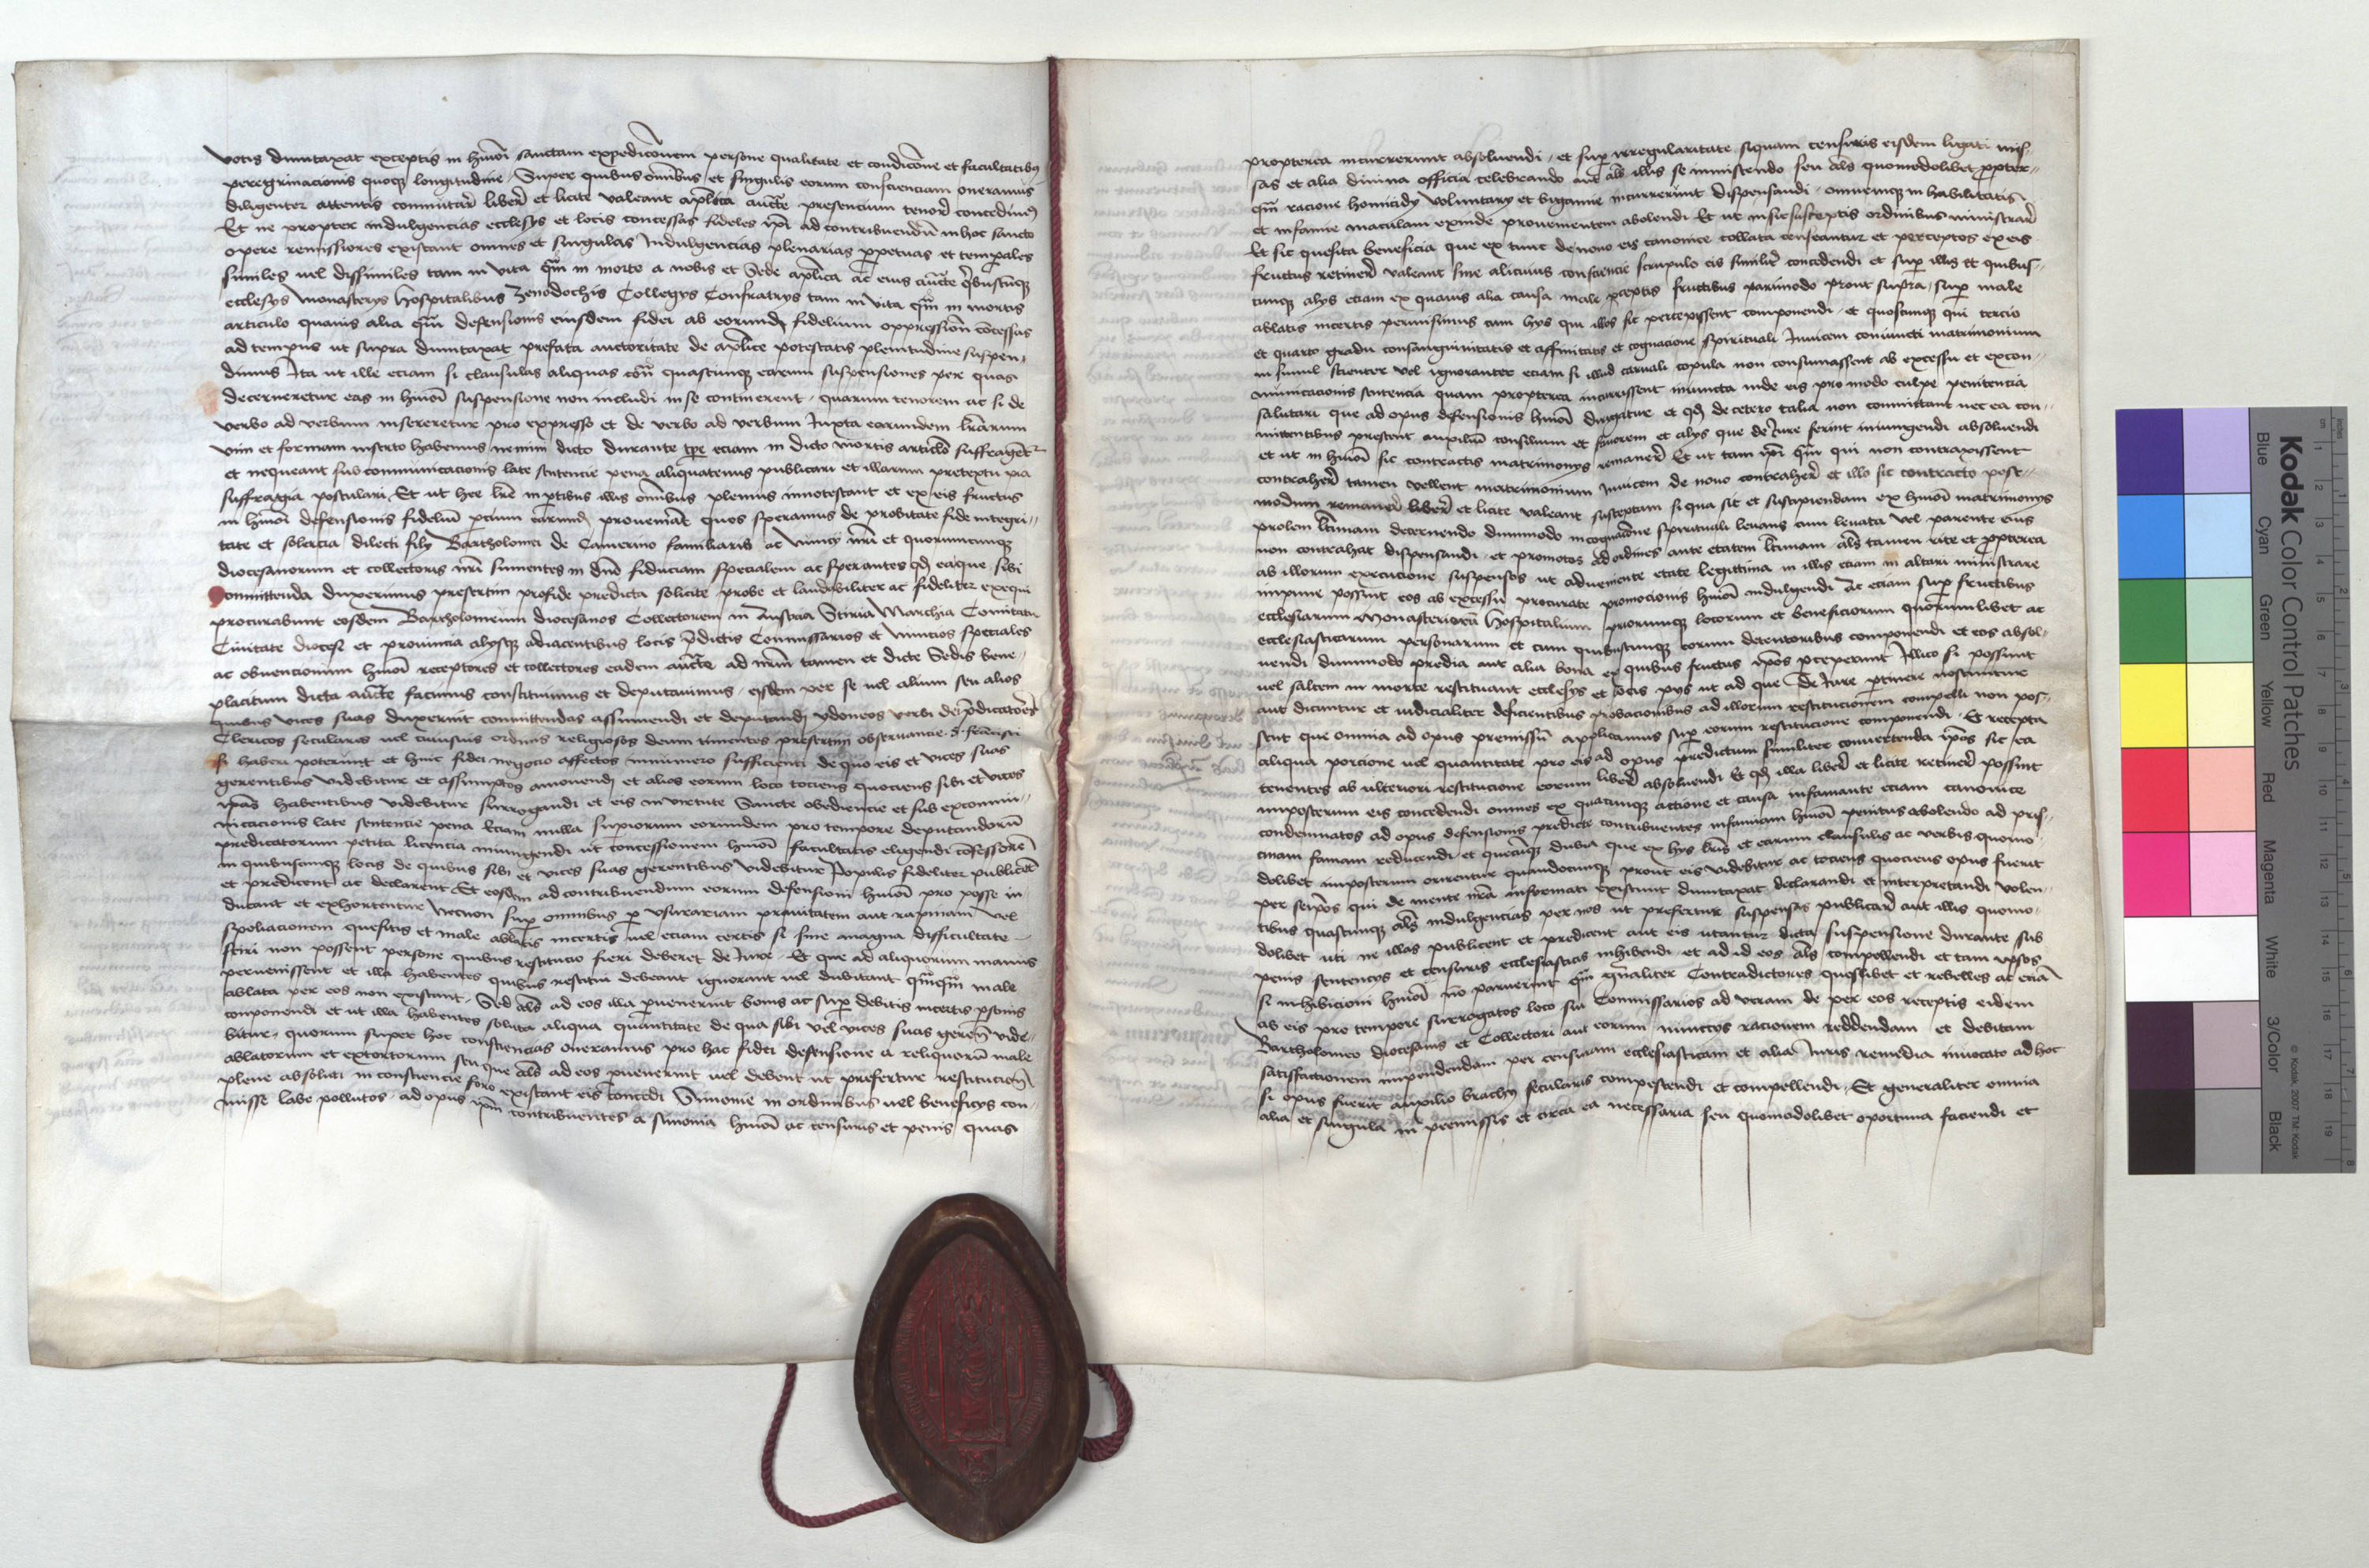 votis dumtaxat exceptis in hmōi sanctam expedicōnem persone qualitate et condicōne et facultatibus
peregrinacionis quoqȝ longitudine Supere quibus omībus et singulis eorum conscienciam oneramus
diligenter attentis commutar̄ liber̄ et licite valeant aplīca auctē presencium tenor̄ concedimȝ
Et ne propter indulgencias ecclesijs et locis concessas fideles ipī ad contribuendū in hoc sancto
opere remissiores existant omnes et singulas Indulgencias plenarias ppetuas et tempales
similes uel dissimiles tam in vita qm̄ in morte a nobis et Sede aplīca ac eius auctē qbuscūqȝ
ecclesijs Monasterijs Hospitalibus Zenodochis Collegijs Confratrijs tam in vita qm̄ in mortis
articulo quauis alia qm̄ defensionis eiusdem fidei ab eorundȝ fidelium oppressiōn cōcessas
ad tempus ut supra dumtaxat prefata auctoritate de aplīce potestatis plenitudine suspen-
dimus Ita ut ille eciam si clausulas aliquas cōtr̄ quascunqȝ earum suspensiones per quas
decerneretur eas in hmōi suspensione non includi in se continerent quarum tenorem ac si de
verbo ad verbum insereretur pro expresso et de verbo ad verbum Iuxta earundem lrārum
vim et formam inserto habemus nemini dicto durante tpe eciam in dicto mortis articlo suffragēt
et nequeant sub communicacionis late sentencie pena aliquatenus publicari et illarum pretextu pia
suffragia postulari Et ut hee lre in ptibus illis omībus plenius innotescant et ex eis fructus
in hmōi defensionis fideliū pcium earundȝ proueniāt quos speramus de probitate fide integri-
tate et solercia dilecti filij Bartholomei de Camerino familiaris ac Nuncij nrī et quorumcunqȝ
diocesanorum et collectoris nrī sumentes in dnō fiduciam specialem ac sperantes qd eaque sibi
committenda duxerimus presertim profide predicta solicite probe et laudabiliter ac fideliter exequi
procurabunt eosdem Bartholomeum diocesanos Collectorem in Austria Stiria Marchia Comitatu
Ciuitate dioces̄ et prouincia alijsqȝ adiacentibus locis p̄dictis Commissarios et Nuncios speciales
ac obuencionum hmōi receptores et collectores eadem auctē ad nrm̄ tamen et dicte Sedis bene-
placitum dicta auctē facimus constituimus et deputauimus eisdem per se uel alium seu alios
quibus vices suas duxerint committendas assumendi et deputandȝ ydoneos verbi dei p̄dicatores
Clericos seculares uel cuiusuis ordinis religiosos deum timentes presertim obseruancie S. francisci
si haberi poterunt et huic fidei negocio affectos innumero sufficienti de quo eis et vices suas
gerentibus videbitur et assumptos amouendȝ et alios eorum loco tociens quociens sibi et vices
ipas habentibus videbitur surrogandi et eis in virtute Sancte obediencie et sub excommu-
nicacionis late sentencie pena Eciam nulla supiorum eorundem pro tempore deputandorū
predicatorum petita licencia iniungendi ut concessionem hmōi facultatis eligendi cōfessorē
in quibuscunqȝ locis de quibus sibi et vices suas gerentibus videbitur Populis fideliter publicēt
et predicent ac declarent Et eosdem ad contribuendum eorum defensioni hmōi pro posse in-
ducant et exhortentur Necnon sup omnibus p vsurariam prauitatem aut rapinam vel
spoliacionem quesitis et male ablatis incertis uel eciam certis si sine magna difficultate
sciri non possent persone quibus restitucio fieri deberet de Iure Et que ad aliquorum manus
peruenissent et illa habentes quibus restitui debeant ignorant uel dubitant qmqm̄ male
ablata per eos non existant Sed als̄ ad eos illa puenerint bonis ac sup debitis incertis psonis
componendi et ut illa habentes soluta aliqua quantitate de qua sibi vel vices suas gerēn vide-
bitur quorum super hoc consciencias oneramus pro hac fidei defensione a reliquorū male
ablatorum et extortorum seu que als̄ ad eos puenerint uel debent ut prefertur restitucion̄
plene absoluti in consciencie foro existant eis concedi Simonie in ordinibus uel beneficijs con-
misse labe pollutos ad opus ipm̄ contribuentes a simonia hmōi ac censuris et penis quas
propterea incurrerunt absoluendi et sup irregularitate siquam censuris eisdem ligati mis-
sas et alia diuina officia celebrando aut als̄ illis se inmiscendo seu als̄ quomodolibet ppter-
qm̄ racione homicidij voluntarij et bigamie incurrerunt dispensandi omnemqȝ inhabilitatis
et infamie maculam exinde prouenientem abolendi Et ut in sic susceptis ordinibus ministrar̄
Et sic quesita beneficia que ex tunc de nouo eis canonice collata censeantur et perceptos ex eis
fructus retiner̄ valeant sine alicuius consciencie scrupulo eis similitr̄ concedendi et sup illis et quibus-
cunqȝ alijs eciam ex quauis alia causa male pceptis fructibus parimodo prout supra sup male
ablatis incertis permisimus cum hijs qui illos sic percepissent componendi et quoscunqȝ qui tercio
et quarto gradu consanguinitatis et affinitatis et cognacione spirituali Inuicem coniuncti matrimonium
in simul scienter vel ignoranter eciam si illud carnali copula non consumassent ab excessu et excom-
municacionis sentencia quam propterea incurrissent iniuncta inde eis pro modo culpe penitencia
salutari que ad opus defensionis hmōi dirigatur et qd decetero talia non committant nec ea con-
mittentibus prestent auxiliū consilium et fauorem et alijs que de Iure fuerint iniungendi absoluendi
et ut in hmōi sic contractis matrimonijs remaner̄ Et ut tam ipī qm̄ qui non contraxissent
contraher̄ tamen vellent matrimonium inuicem de nouo contraher̄ et illo sic contracto post-
modum remaner̄ liber̄ et licite valeant susceptam si qua sit et suscipiendam ex hmōi matrimonijs
prolem ltīmam decernendo dummodo in cognacōne spirituali leuans cum leuata vel parente eius
non contrahat dispensandi et promotos ad ordines ante etatem ltīmam als̄ tamen rite et ppterea
ab illorum execucione suspensos ut adueniente etate legittima in illis eciam in altari ministrare
impune possint eos ab excessu procurate promocionis hmōi indulgendi Ac eciam sup fructibus
ecclesiarum Monasteriorū Hospitalium piorumqȝ locorum et beneficiorum quorumlibet ac
ecclesiasticarum personarum et cum quibuscunqȝ eorum detentoribus componendi et eos absol-
uendi dummodo predia aut alia bona ex quibus fructus ipos pceperunt Illico si possunt
uel saltem in morte restituant ecclesijs et locis pijs ut ad que de Iure ptinere noscuntur
aut dicuntur et iudicialiter deficientibus probacionibus ad illorum restitucionem compelli non pos-
sent que omnia ad opus premissū applicamus sup eorum restitucione componendi Et recepta
aliqua porcione uel quantitate pro eis ad opus predictum similiter conuertenda ipos sic ea
tenentes ab ulteriori restitucione eorum liber̄ absoluendi Et qd illa liber̄ et licite retiner̄ possint
imposterum eis concedendi omnes ex quacunqȝ actione et causa infamante eciam canonice
condemnatos ad opus defensionis predicte contribuentes infamiam hmōi penitus abolendo ad pris-
tinam famam reducendi et quecūqȝ dubia que ex hijs lris̄ et earum clausulis ac verbis quomo-
dolibet imposterum orirentur quandocunqȝ prout eis videbitur ac tociens quociens opus fuerit
per seipos qui de mente nrā informati existunt dumtaxat declarandi et interpretandi Volen-
tibus quascunqȝ als̄ indulgencias per nos ut prefertur suspensas publicar̄ aut illis quomo-
dolibet uti ne illas publicent et predicent aut eis utantur dicta suspensione durante sub
penis sentencijs et censuris ecclesiasticis inhibendi et ad id eos als̄ compellendi et tam ipsos
si inhibicioni hmōi nō paruerint qm̄ gnāliter Contradictores quoslibet et rebelles ac eciā
ab eis pro tempore surrogatos loco sui Commissarios ad veram de per eos receptis eidem
Bartholomeo diocesanis et Collectori aut eorum nunccijs racionem reddendam et debitam
satisfactionem impendendam per censuram ecclesiasticam et alia Iuris remedia inuocato ad hoc
si opus fuerit auxilio brachij secularis compescendi et compellendi Et generaliter omnia
alia et singula in premissis et circa ea necessaria seu quomodolibet oportuna faciendi et
Kodak Color Control Patches
Blue Cyan Green Yellow Red Magenta White 3/Color Black
© Kodak, 2007 TM: Kodak